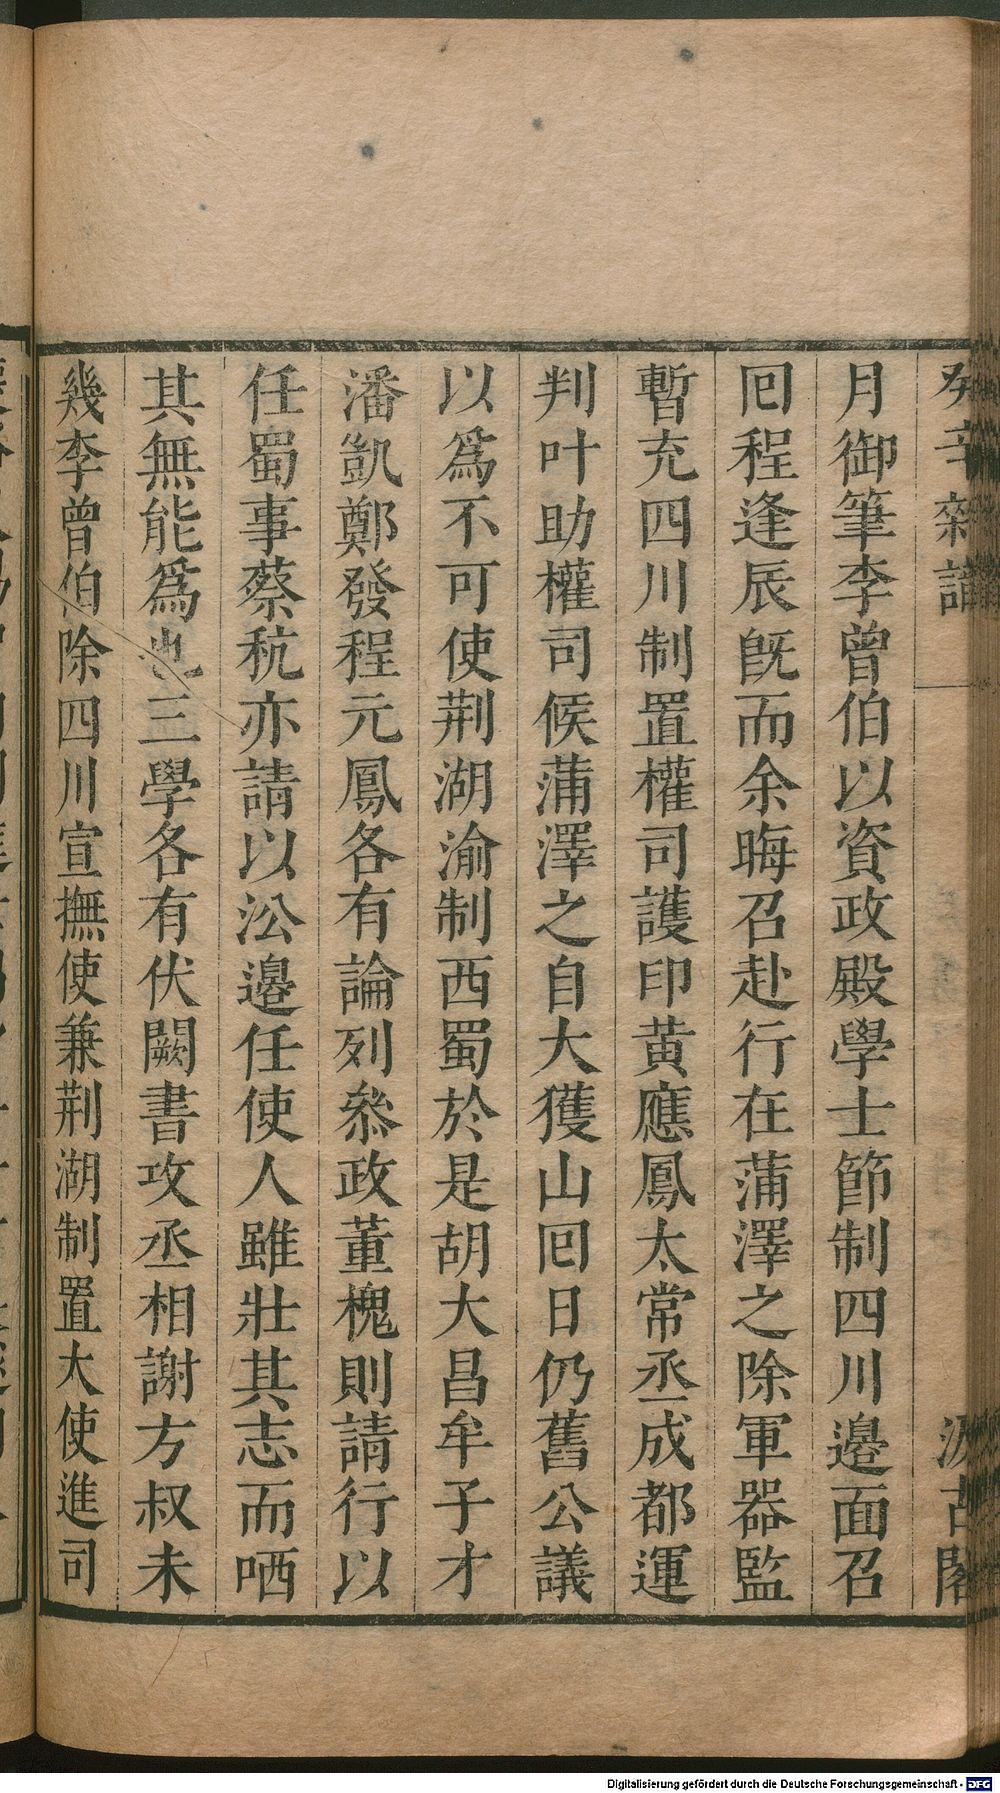 癸辛雜識
汲古閣
月御筆李曾伯以資政殿學士節制四川邊面召
囘程逢辰旣而余晦召赴行在蒲澤之除軍器監
暫充四川制置權司護印黃應鳳太常丞成都運
判叶助權司候蒲澤之自大獲山囘日仍舊公議
以爲不可使荆湖渝制西蜀於是胡大昌牟子才
潘凱鄭發程元鳳各有論列叅政董槐則請行以
任蜀事蔡秔亦請以㳂邊任使人雖壯其志而哂
其無能爲也三學各有伏闕書攻丞相謝方叔未
幾李曾伯除四川宣撫使兼荆湖制置大使進司
Digitalisierung gefördert durch die Deutsche Forschungsgemeinschaft - DFG